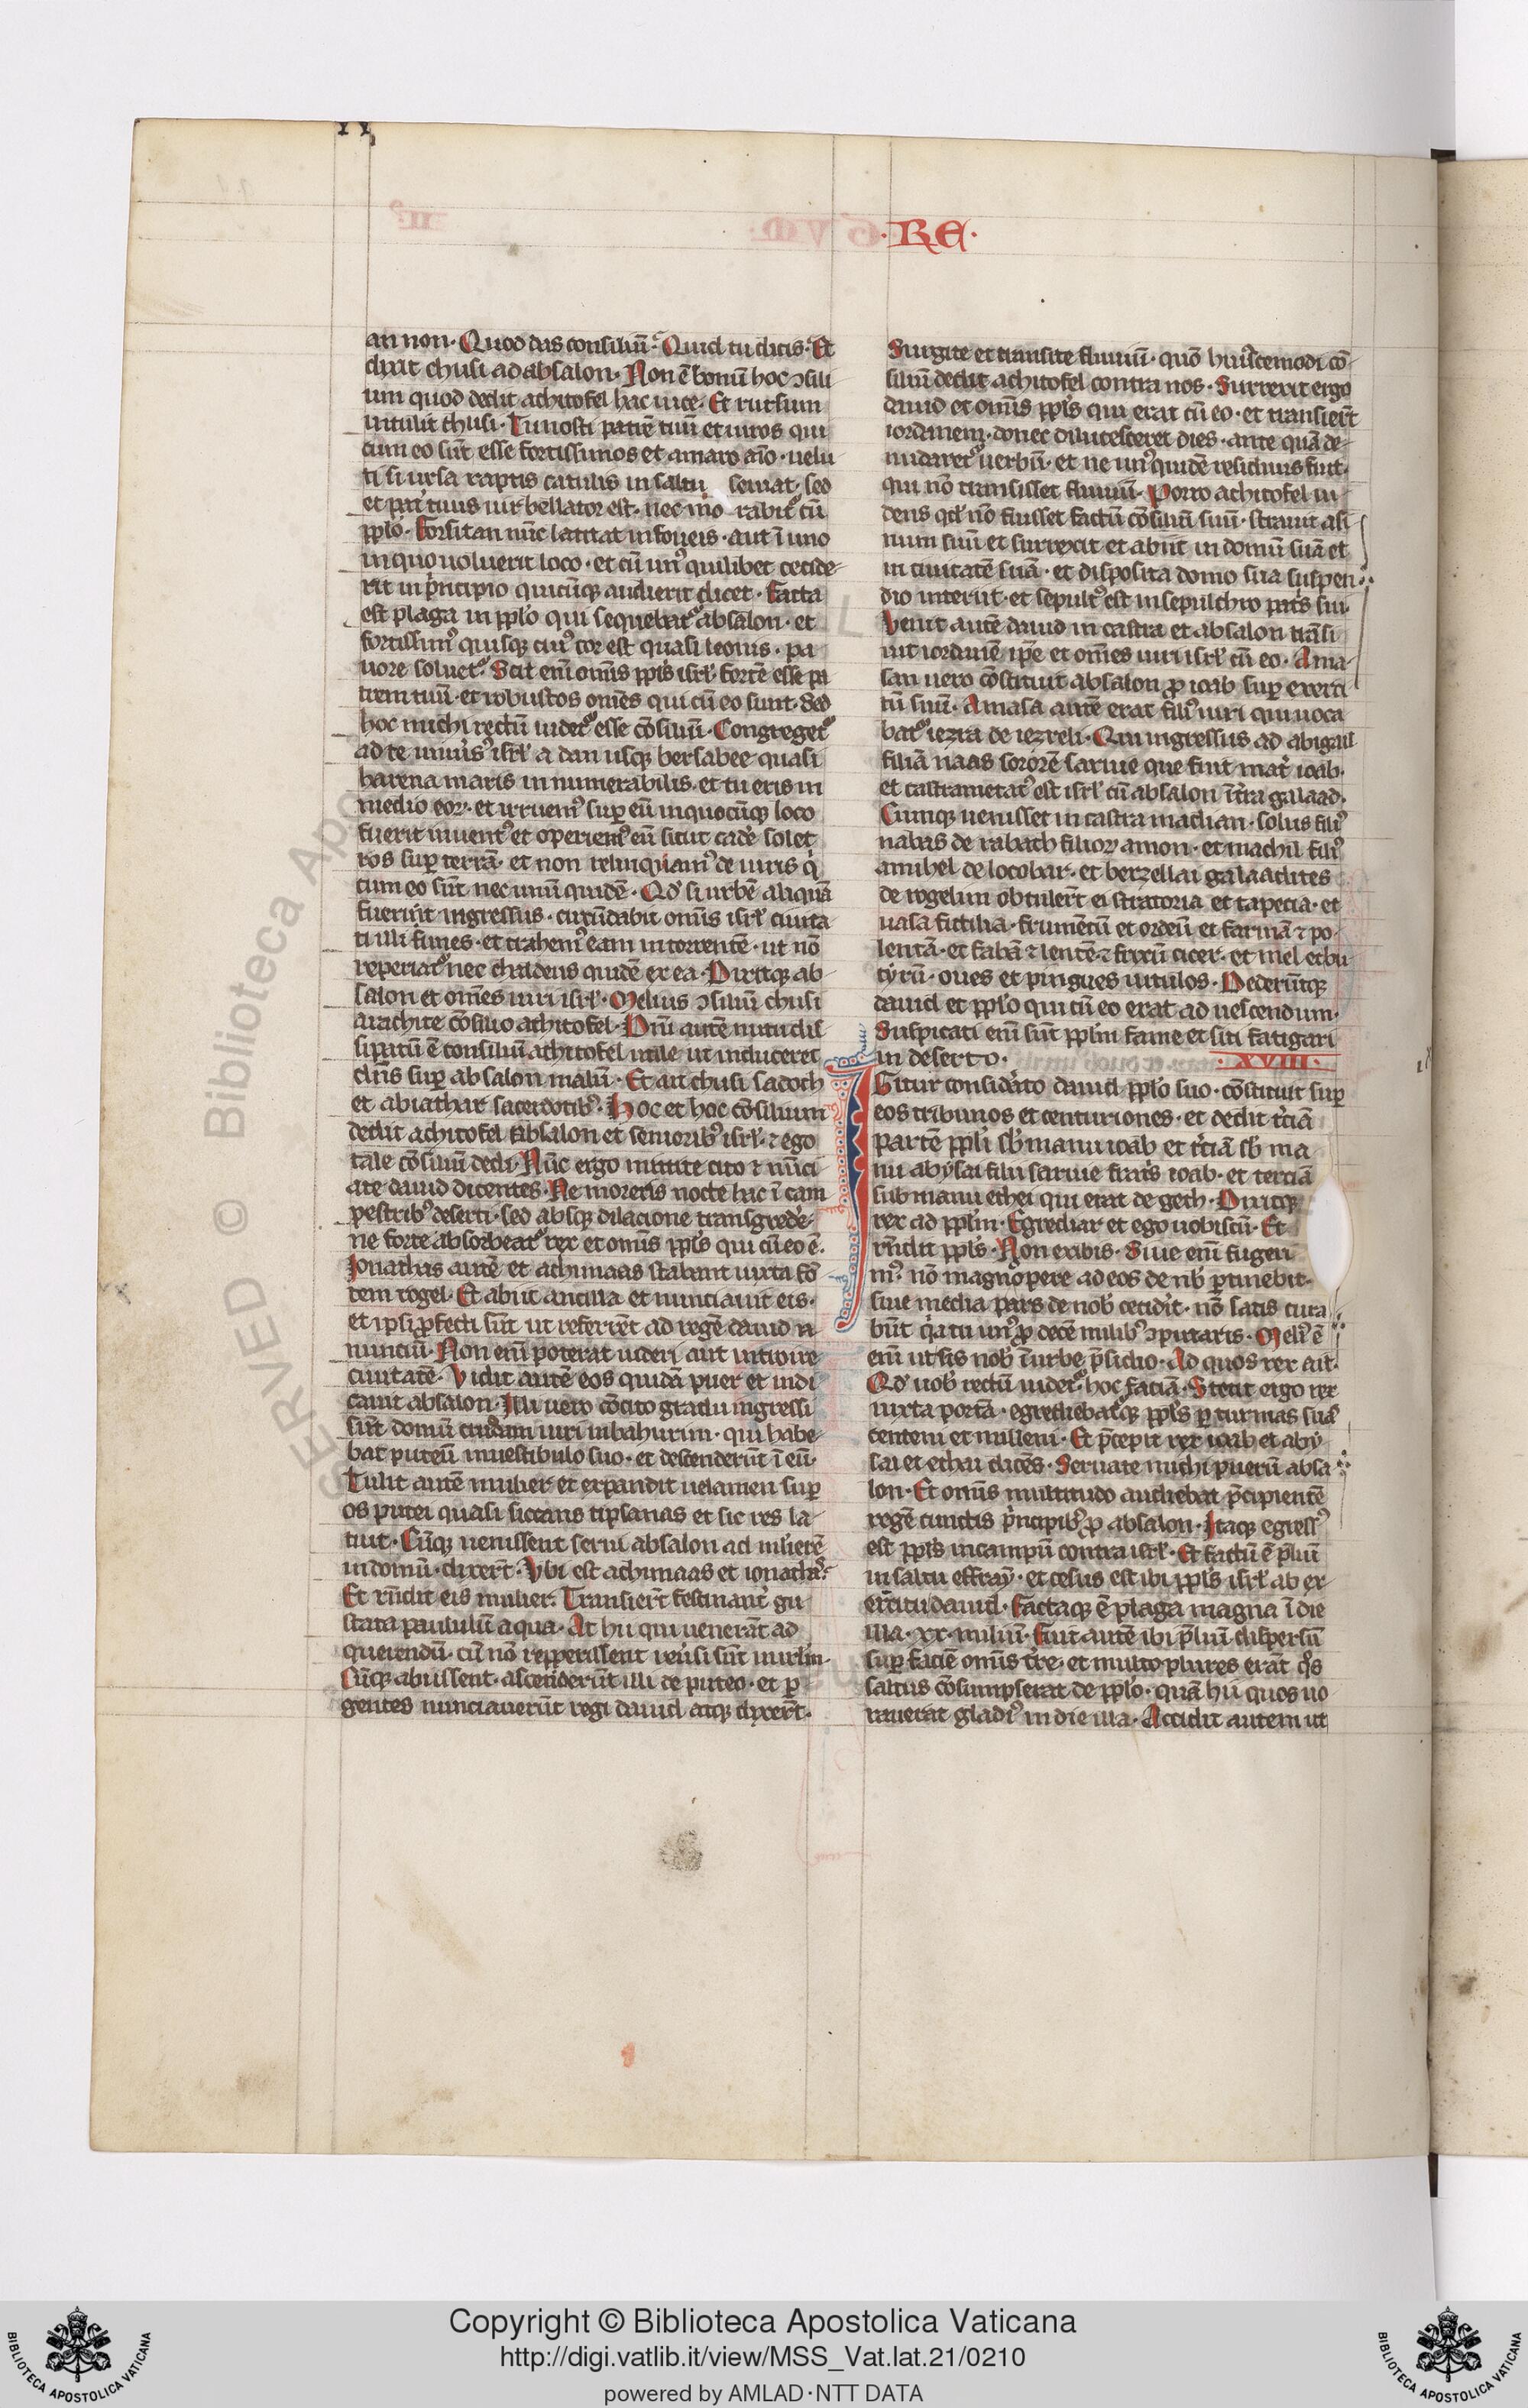 ·RE·
an non· Quod das consiliũ· Quid tu dicis· Et
dixit chusi ad absalon· Non ẽ bonũ hoc ɔsili
um quod dedit achitofel hac uice· Et rursum
intulit chusi· Tu nosti patrẽ tuũ et uiros qui
cum eo sũt esse fortissimos et amaro aĩo· uelu
ti si ursa raptis catulis in saltu seuiat· sed
et pat̓ tuus uir bellator est· nec mo rabit᷑ cũ
pp̃lo· Forsitan nũc latitat in foueis· aut ĩ uno
in quo uoluerit loco· et cũ unꝰ quilibet cecide-
rit in p̓ncipio quicũqꝫ audierit dicet· Facta
est plaga in pp̃lo qui sequebat᷑ absalon· et
fortissimꝰ quisqꝫ cuiꝰ cor est quasi leonis· pa
uore soluet᷑· Scit enĩ omĩs pp̃ls isrł fortẽ esse pa
trem tuũ· et robustos omẽs qui cũ eo sunt· Sed
hoc michi rectũ uidet᷑ esse cõsiliũ· Congreget᷑
ad te uniuẽsꝰ isrł a dan usqꝫ bersabee quasi
harena maris innumerabilis· et tu eris in
medio eoꝝ· et irruemꝰ suꝑ eũ in quocũqꝫ loco
fuerit inuentꝰ et operiemꝰ eũ sicut cadẽ solet
ros suꝑ terrã· et non relinquamꝰ de uiris q̓
cum eo sũt nec unũ quidẽ· Qđ si urbẽ aliquã
fuerit ingressus· circũdabit omĩs isrł ciuita
ti illi funes· et trahemꝰ eam in torrentẽ· ut nõ
reperiat᷑ nec calculus quidẽ ex ea· Dixitqꝫ ab-
salon et omẽs uiri isrł· Melius ɔsiliũ chusi
arachite cõsilio achitofel· Dñi autẽ nutu dis
sipatũ ẽ consiliũ achitofel utile ut induceret
dñs suꝑ absalon malũ· Et ait chusi sadoch
et abiathar sacerdotibꝰ· Hoc et hoc cõsilium
dedit achitofel absalon et senioribꝰ isrł· ⁊ ego
tale cõsiliũ dedi· Nũc ergo mittite cito ⁊ nũci
ate dauid dicentes· Ne moreris nocte hac ĩ cam
pestribꝰ deserti· sed absqꝫ dilacione transgredẽ-
ne forte absorbeat᷑ rex et omĩs pp̃ls qui cũ eo ẽ·
Ionathas autẽ et achimaas stabant iuxta fõ
tem rogel· Et abiit ancilla et nunciauit eis·
et ipsi ꝓfecti sũt ut referrẽt ad regẽ dauid n
nunciũ· Non enĩ poterat uideri aut introire
ciuitatẽ· Vidit autẽ eos quidã puer et indi
cauit absalon· Illi uero cõcito gradu ingressi
sũt domũ cuiusdam uiri in bahurim· qui habe
bat puteũ in uestibulo suo· et descenderũt ĩ eũ·
Tulit autẽ mulier et expandit uelamen suꝑ
os putei quasi siccans tipsanas et sic res la
tuit· Cũqꝫ uenissent serui absalon ad mlierẽ
in domũ· dixert̃· Vbi est achimaas et ionathas·
Et rñdit eis mulier· Transiert̃ festinant̓ gu
stata paululũ aqua· At hii qui uenerãt ad
querendũ· cũ nõ repperissent reũsi sũt in irlm̃·
Cũqꝫ abissent· ascenderũt illi de puteo· et ꝑ
gentes nunciauerũt regi dauid atqꝫ dixert̃·
Surgite et transite fluuiũ· quõ huiꝰcemodi cõ-
siliũ dedit achitofel contra nos· Surrexit ergo
dauid et omĩs pp̃ls qui erat cũ eo· et transiert̃
iordanem· donec dilucesceret dies· ante quã de-
nudaret᷑ uerbũ· et ne unꝰ quidẽ residuus fuit·
qui nõ transisset fluuiũ· Porro achitofel ui
dens qđ nõ fuisset factũ cõsiliũ suũ· strauit asi
num suũ et surrexit et abiit in domũ suã et
in ciuitatẽ suã· et disposita domo sua suspen
dio interiit· et sepultꝰ est in sepulchro pat̓s sui·
Venit autẽ dauid in castra et absalon trãsi
uit iordanẽ ip̃e et omẽs uiri isrł cũ eo· Ama-
san uero cõstituit absalon ꝓ ioab suꝑ exerci
tũ suũ· Amasa autẽ erat filiꝰ uiri qui uoca
bat᷑ iezra de iezreli· Qui ingressus ad abigail
filiã naas sororẽ saruie que fuit mat̓ ioab·
et castrametatꝰ est isrł cũ absalon ĩ t̃ra galaad·
Cumqꝫ uenisset in castra madian· solus filiꝰ
nabas de rabath filioꝝ amon· et machil filiꝰ
amihel de locobar· et berzellai galaadites
de rogelim obtulert̃ ei stratoria et tapecia· et
uasa fictilia· frumẽtũ et ordeũ et farinã ⁊ po-
lentã· et fabã ⁊ lentẽ· ⁊ frixũ cicer· et mel et bu
tyrũ· oues et pingues uitulos· Dederũtqꝫ
dauid et pp̃lo qui cũ eo erat ad uescendum·
Suspicati enĩ sũt pp̃lm fame et siti fatigari
in deserto·
·XVIII·
Igitur considẽato dauid pp̃lo suo· cõstituit suꝑ
eos tribunos et centuriones· et dedit t̓ciã
partẽ pp̃li sb̓ manu ioab et t̓ciã sb̓ ma
nu abysai filii saruie frat̓s ioab· et terciã
sub manu ethei qui erat de geth· Dixitqꝫ
rex ad pp̃lm· Egrediar et ego uobiscũ· Et
rñdit pp̃ls· Non exibis· Siue enĩ fugeri
mꝰ· nõ magnopere ad eos de nob̓ ꝑtinebit·
siue media pars de nob̓ cecidẽit· nõ satis cura
bũt q̓a tu unꝰ ꝓ decẽ milibꝰ ɔputaris· Meliꝰ ẽ
enĩ ut sis nob̓ ĩ urbe p̃sidio· Ad quos rex ait·
Qđ uob̓ rectũ uidet᷑ hoc faciã· Stetit ergo rex
iuxta portã· egrediebat᷑qꝫ pp̃ls ꝑ turmas suas
centeni et milleni· Et p̃cepit rex ioab et aby
sai et ethai dicẽs· Seruate michi puerũ absa
lon· Et omĩs multitudo audiebat p̃cipientẽ
regẽ cunctis p̓ncipibꝰ ꝓ absalon· Itaqꝫ egressꝰ
est pp̃ls in campũ contra isrł· Et factũ ẽ p̃liũ
in saltu effraỹ· et cesus est ibi pp̃ls isrł ab ex-
ercitu dauid· Factaqꝫ ẽ plaga magna ĩ die
illa· xx· miliũ· Fuit autẽ ibi p̃liũ dispersũ
suꝑ faciẽ omĩs t̃re· et multo plures erãt q̓s
saltus cõsumpserat de pp̃lo· quã hii quos uo
rauerat gladiꝰ in die illa· Accidit autem ut
Copyright © Biblioteca Apostolica Vaticana
http://digi.vatlib.it/view/MSS_Vat.lat.21/0210
powered by AMLAD·NTT DATA
BIBLIOTECA APOSTOLICA VATICANA
BIBLIOTECA APOSTOLICA VATICANA